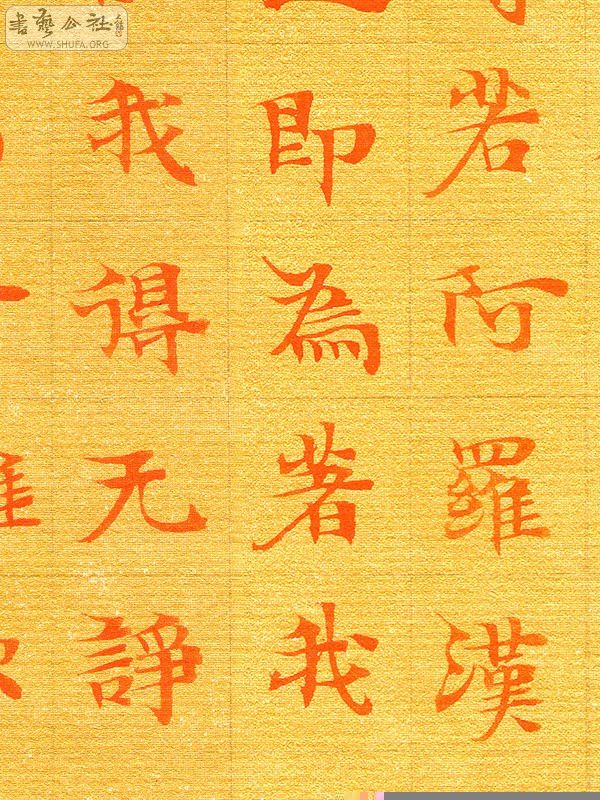 書藝公社
WWW.SHUFA.ORG
若阿羅漢
即為著我
我得无諍